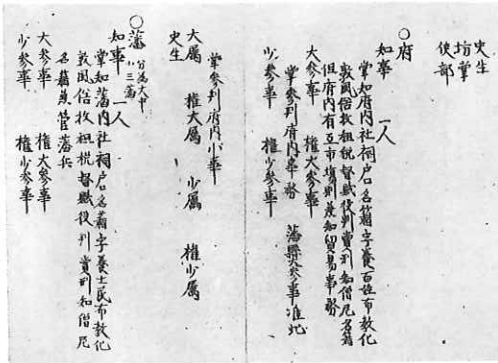 史生
坊掌
使部
○府
知事 一人
掌知府内社祠戸口名籍字養百姓布教化
敦風俗收租税督賦役判賞刑知僧尼名籍
但府内有互市場則兼知貿易事務
大參事 權大參事
掌參判府内事務 藩縣大參事准此
少參事 權少參事
掌參判府内小事
大属 權大属 少属 權少属
史生
○藩 分為大中小三藩
知事 一人
掌知藩内社祠戸口名籍字養士民布教化
敦風俗收租税督賦役判賞刑知僧尼
名籍兼管藩兵
大參事 權大參事
少參事 權少參事